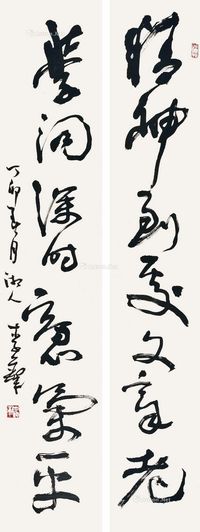 精神到处文章老
学问深时意气平
丁卯年月湖人李铎